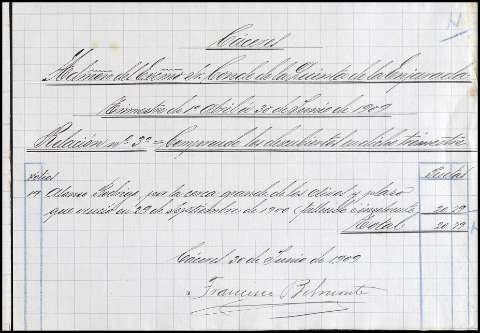 N
Cáceres
Admon del Excmo Sr. Conde de la Quinta de la Enjarada
Trimestre de 1º Abril a 30 de Junio de 1909
Relación nº 3º = Comprende los descubiertos en dicho trimestre
Alonso Rodrigo por la cerca grande de los Olivos y plazo
que venció en 29 de Septiembre de 1900 (fallecido é insolvente) 20 79
Total 20 79
Cáceres 30 de Junio de 1909
Francisco Belmonte